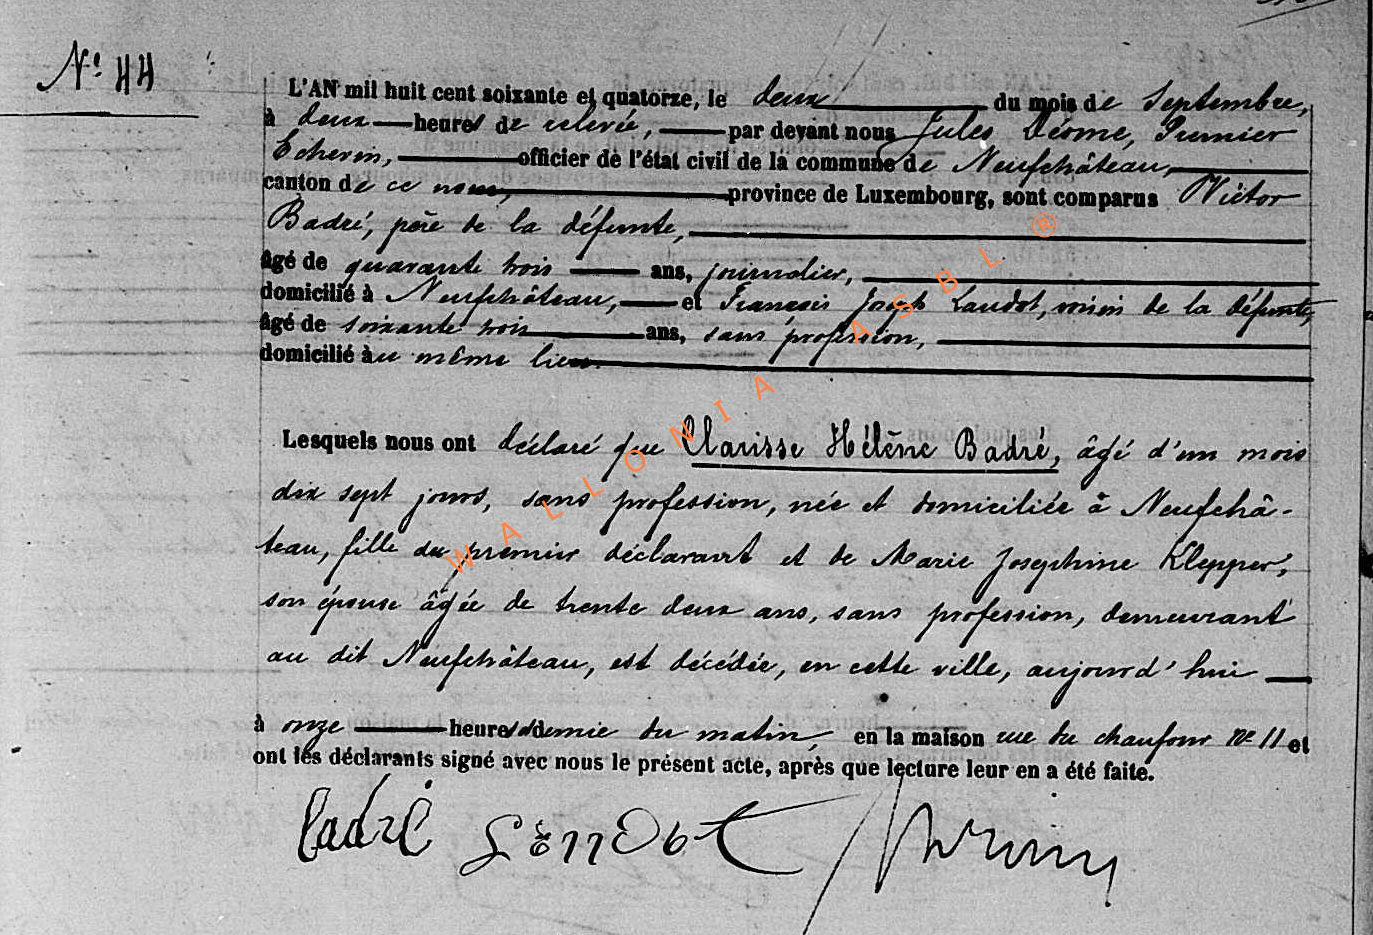 N° 44
L'AN mil huit cent soixante et quatorze, le deux du mois de Septembre,
à deux heures de relevée, par devant nous Jules Déome, Premier
Echevin, officier de l'état civil de la commune de Neufchâteau,
canton de ce nom, province de Luxembourg, sont comparus Victor
Badré, père de la défunte,
âgé de quarante trois ans, journalier,
domicilié à Neufchâteau, et François Joseph Laudot, voisin de la défunte,
âgé de soixante trois ans, sans profession,
domicilié au même lieu.
Lesquels nous ont déclaré que Clarisse Hélène Badré, âgé d'un mois
dix sept jours, sans profession, née et domiciliée à Neufchâ-
teau, fille du premier déclarant et de Marie Josephine Klepper,
son épouse âgée de trente deux ans, sans profession, demeurant
au dit Neufchâteau, est décédée, en cette ville, aujourd'hui
à onze heures et demie du matin, en la maison rue du chaufour N° 11 et
ont les déclarants signé avec nous le présent acte, après que lecture leur en a été faite.
Badré
WALLONIA ASBL ®